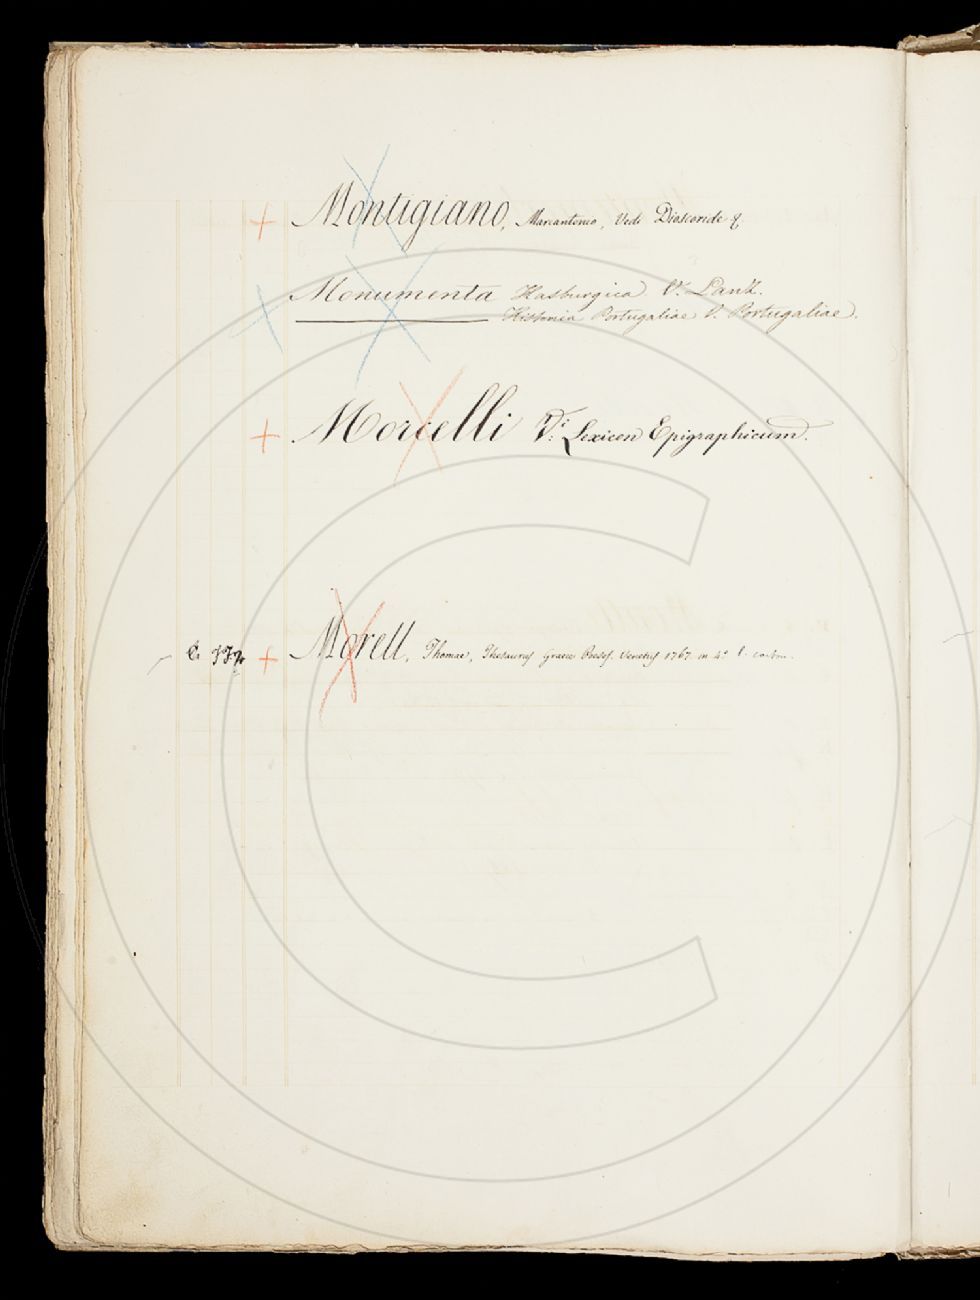 + Montigiano, Marcantonio, Vedi Dioscoride &
Monumenta Hasburgica V. Lanz.
Historia Portugaliae V. Portugaliae.
+ Morcelli V.i Lexicon Epigraphicum.
+ Morell, Thomae, Thesaurus Graecae Poeses. Venetiis 1767. in 4.o